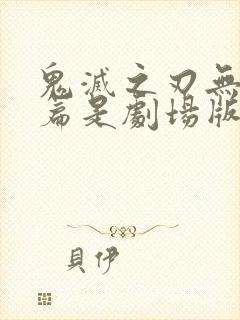 鬼滅之刃無
篇是劇場版
貝伊